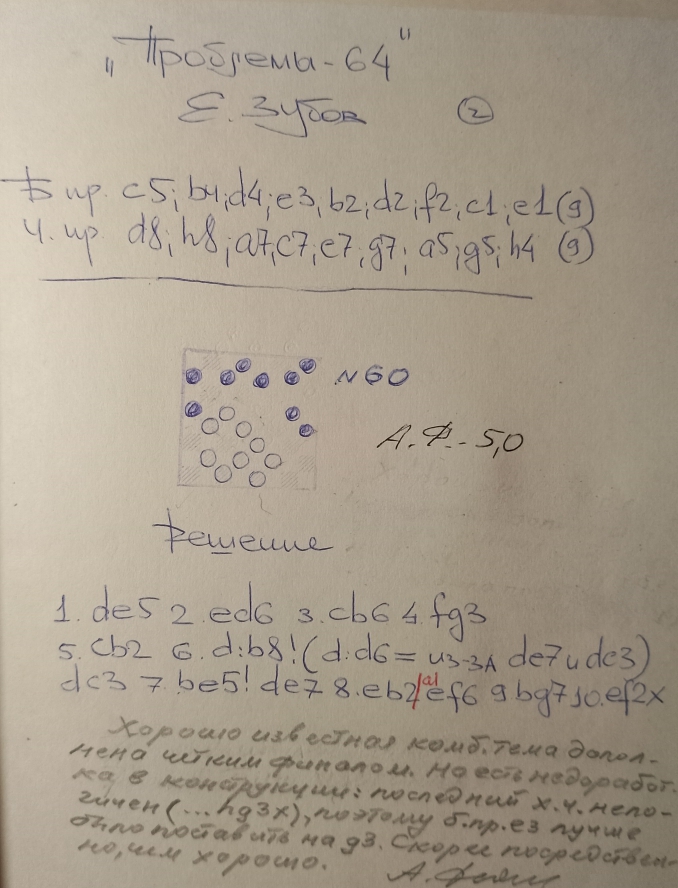 „Проблема-64"
Е. Зубов ②
Б пр. c5; b4; d4; e3, b2; d2; f2, c1; e1 (9)
Ч. пр d8; h8; a7, c7; e7; g7; a5; g5; h4 (9)
N 60
А.Ф. - 5,0
Решение
1. de5 2. ed6 3. cb6 4. fg3
5. cb2 6. d:b8! (d:d6= из-за de7 и dc3)
dc3 7. be5! de7 8. eb2/a1 ef6 9 bg7 10. ef2x
Хорошо известная комб. тема допол-
нена чётким финалом. Но есть недоработ-
ка в конструкции: последний х.ч. нело-
гичен (...hg3x), поэтому б.пр. e3 лучше
было поставить на g3. Скорее посредствен-
но, чем хорошо.